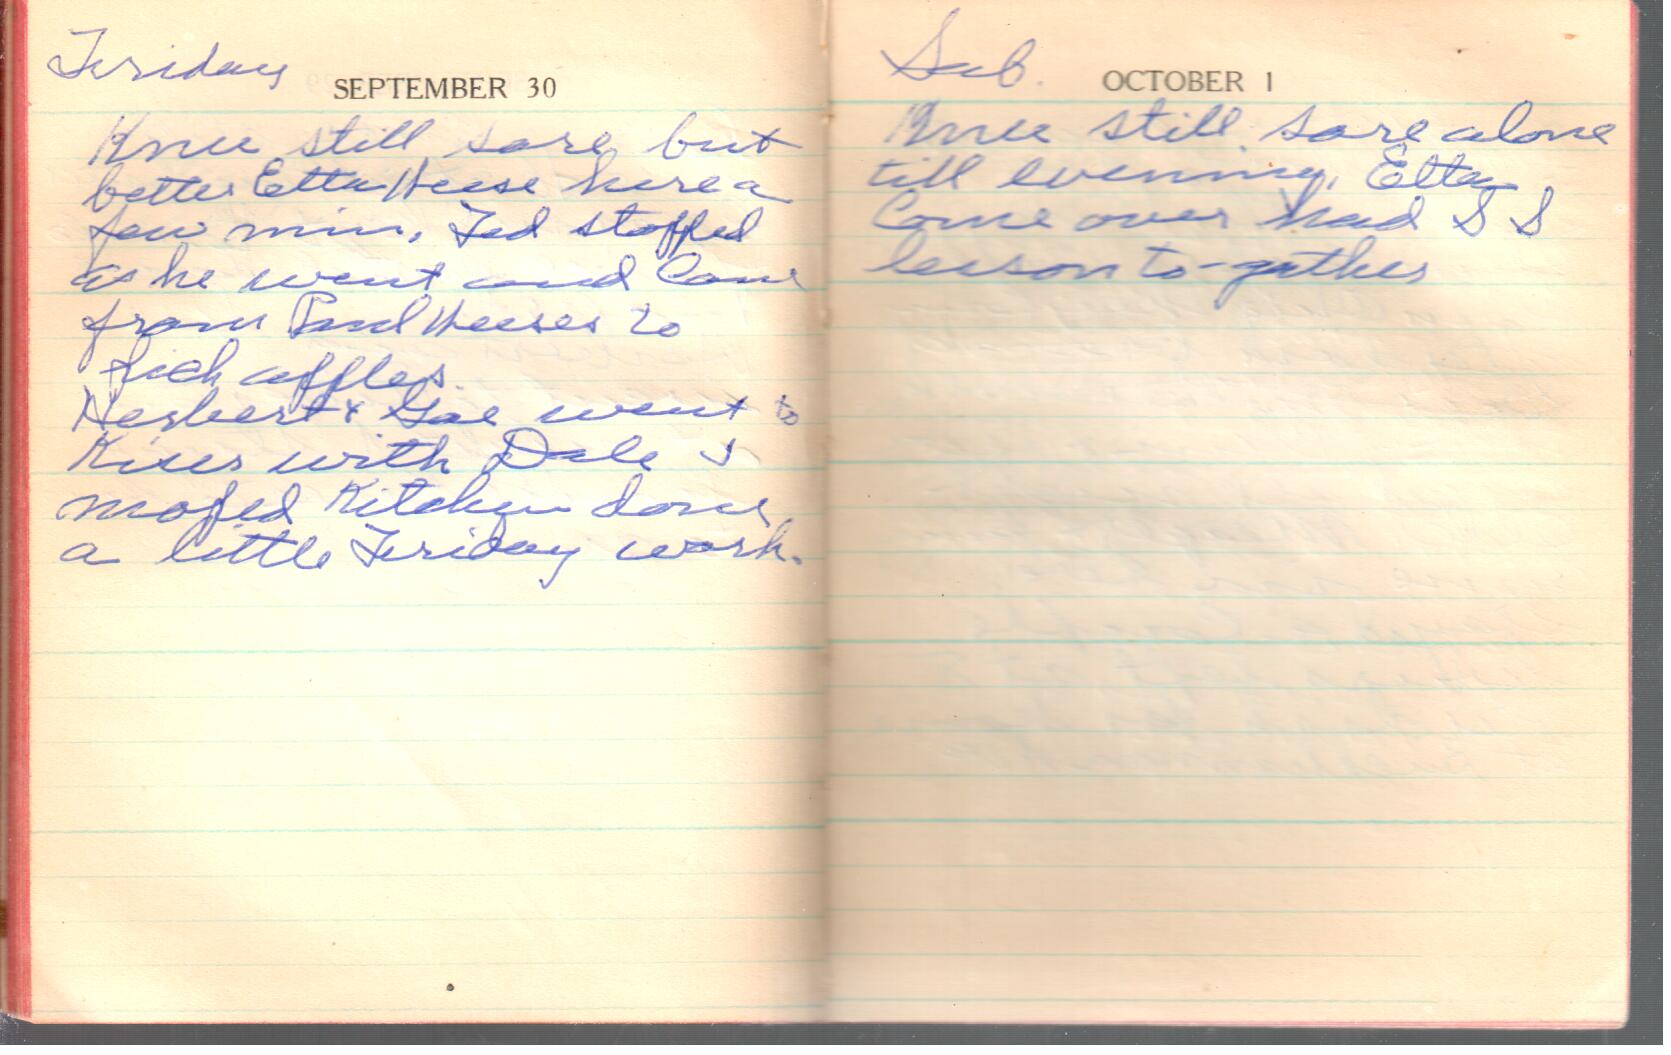 Friday
SEPTEMBER 30
Knee still sore, but
better Etta Heese here a
few min, Ted stopped
as he went and Come
from Paul Heeses to
pick apples.
Herbert & Gae went to
Kisers with Dale I
moped Kitchen done
a little Friday work.
Sab.
OCTOBER 1
Knee still sore alone
till evening, Etta
Come over had S S
lesson to-gether